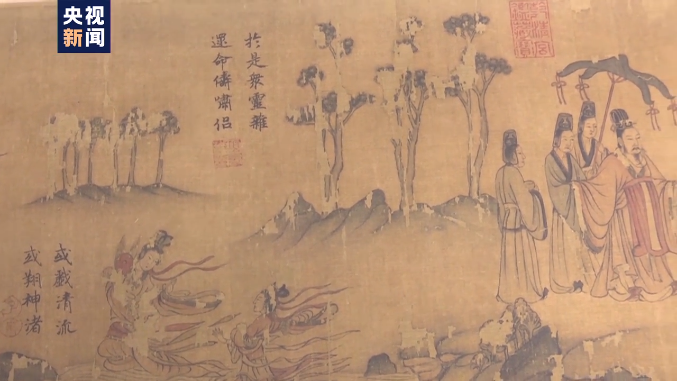 央视
新闻
於是衆靈雜
遝命儔嘯侶
或戲清流
或翔神渚